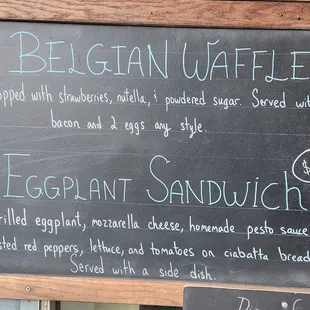 BELGIAN WAFFLE
opped with strawberries, nutella, & powdered sugar. Served wit
bacon and 2 eggs any style.
EGGPLANT SANDWICH
$
rilled eggplant, mozzarella cheese, homemade pesto sauce
sted red peppers, lettuce, and tomatoes on ciabatta bread
Served with a side dish.